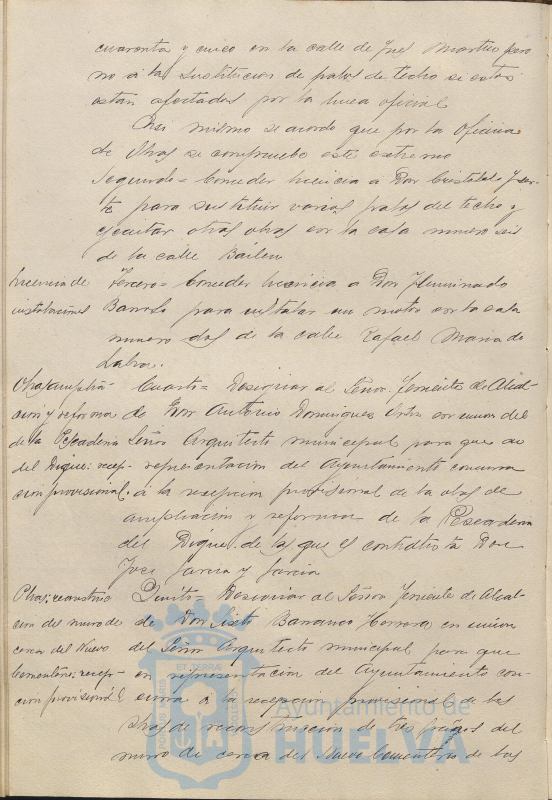 cuarenta y cinco en la calle de José Martin pero
no á la sustitucion de palos de techo si estos
estan afectados por la linea oficial
Asi mismo se acordo que por la Oficina
de Obras se compruebe este extremo
Segundo = Conceder licencia á Don Cristobal
para sustituir varios palos del techo y
ejecutar otras obras en la casa numero seis
de la calle Bailen
Licencia de
instalaciones
Tercero = Conceder licencia á Don Iluminado
Barroso para instalar un motor en la casa
numero dos de la calle Rafael Maria de
Labra.
Obras amplia-
cion y reforma
de la Pescaderia
del Dique: recep-
cion provisional.
Cuarto = Designar al Señor Teniente de Alcal-
de Don Antonio Dominguez Ortiz en union del
Señor Arquitecto municipal para que en
representacion del Ayuntamiento concurra
á la recepcion provisional de las obras de
ampliacion y reforma de la Pescaderia
del Dique de las que es contratista Don
Jose Garcia y Garcia
Obras: reconstruc-
cion del muro de
cerca del Nuevo
Cementerio: recep-
cion provisional
Quinto = Designar al Señor Teniente de Alcal-
de Don Sixto Barranco Herrera en union
del Señor Arquitecto municipal para que
en representacion del Ayuntamiento con-
curra á la recepcion provisional de las
obras de reconstruccion de tres paños del
muro de cerca del Nuevo Cementerio de las
Ayuntamiento de
HUELVA